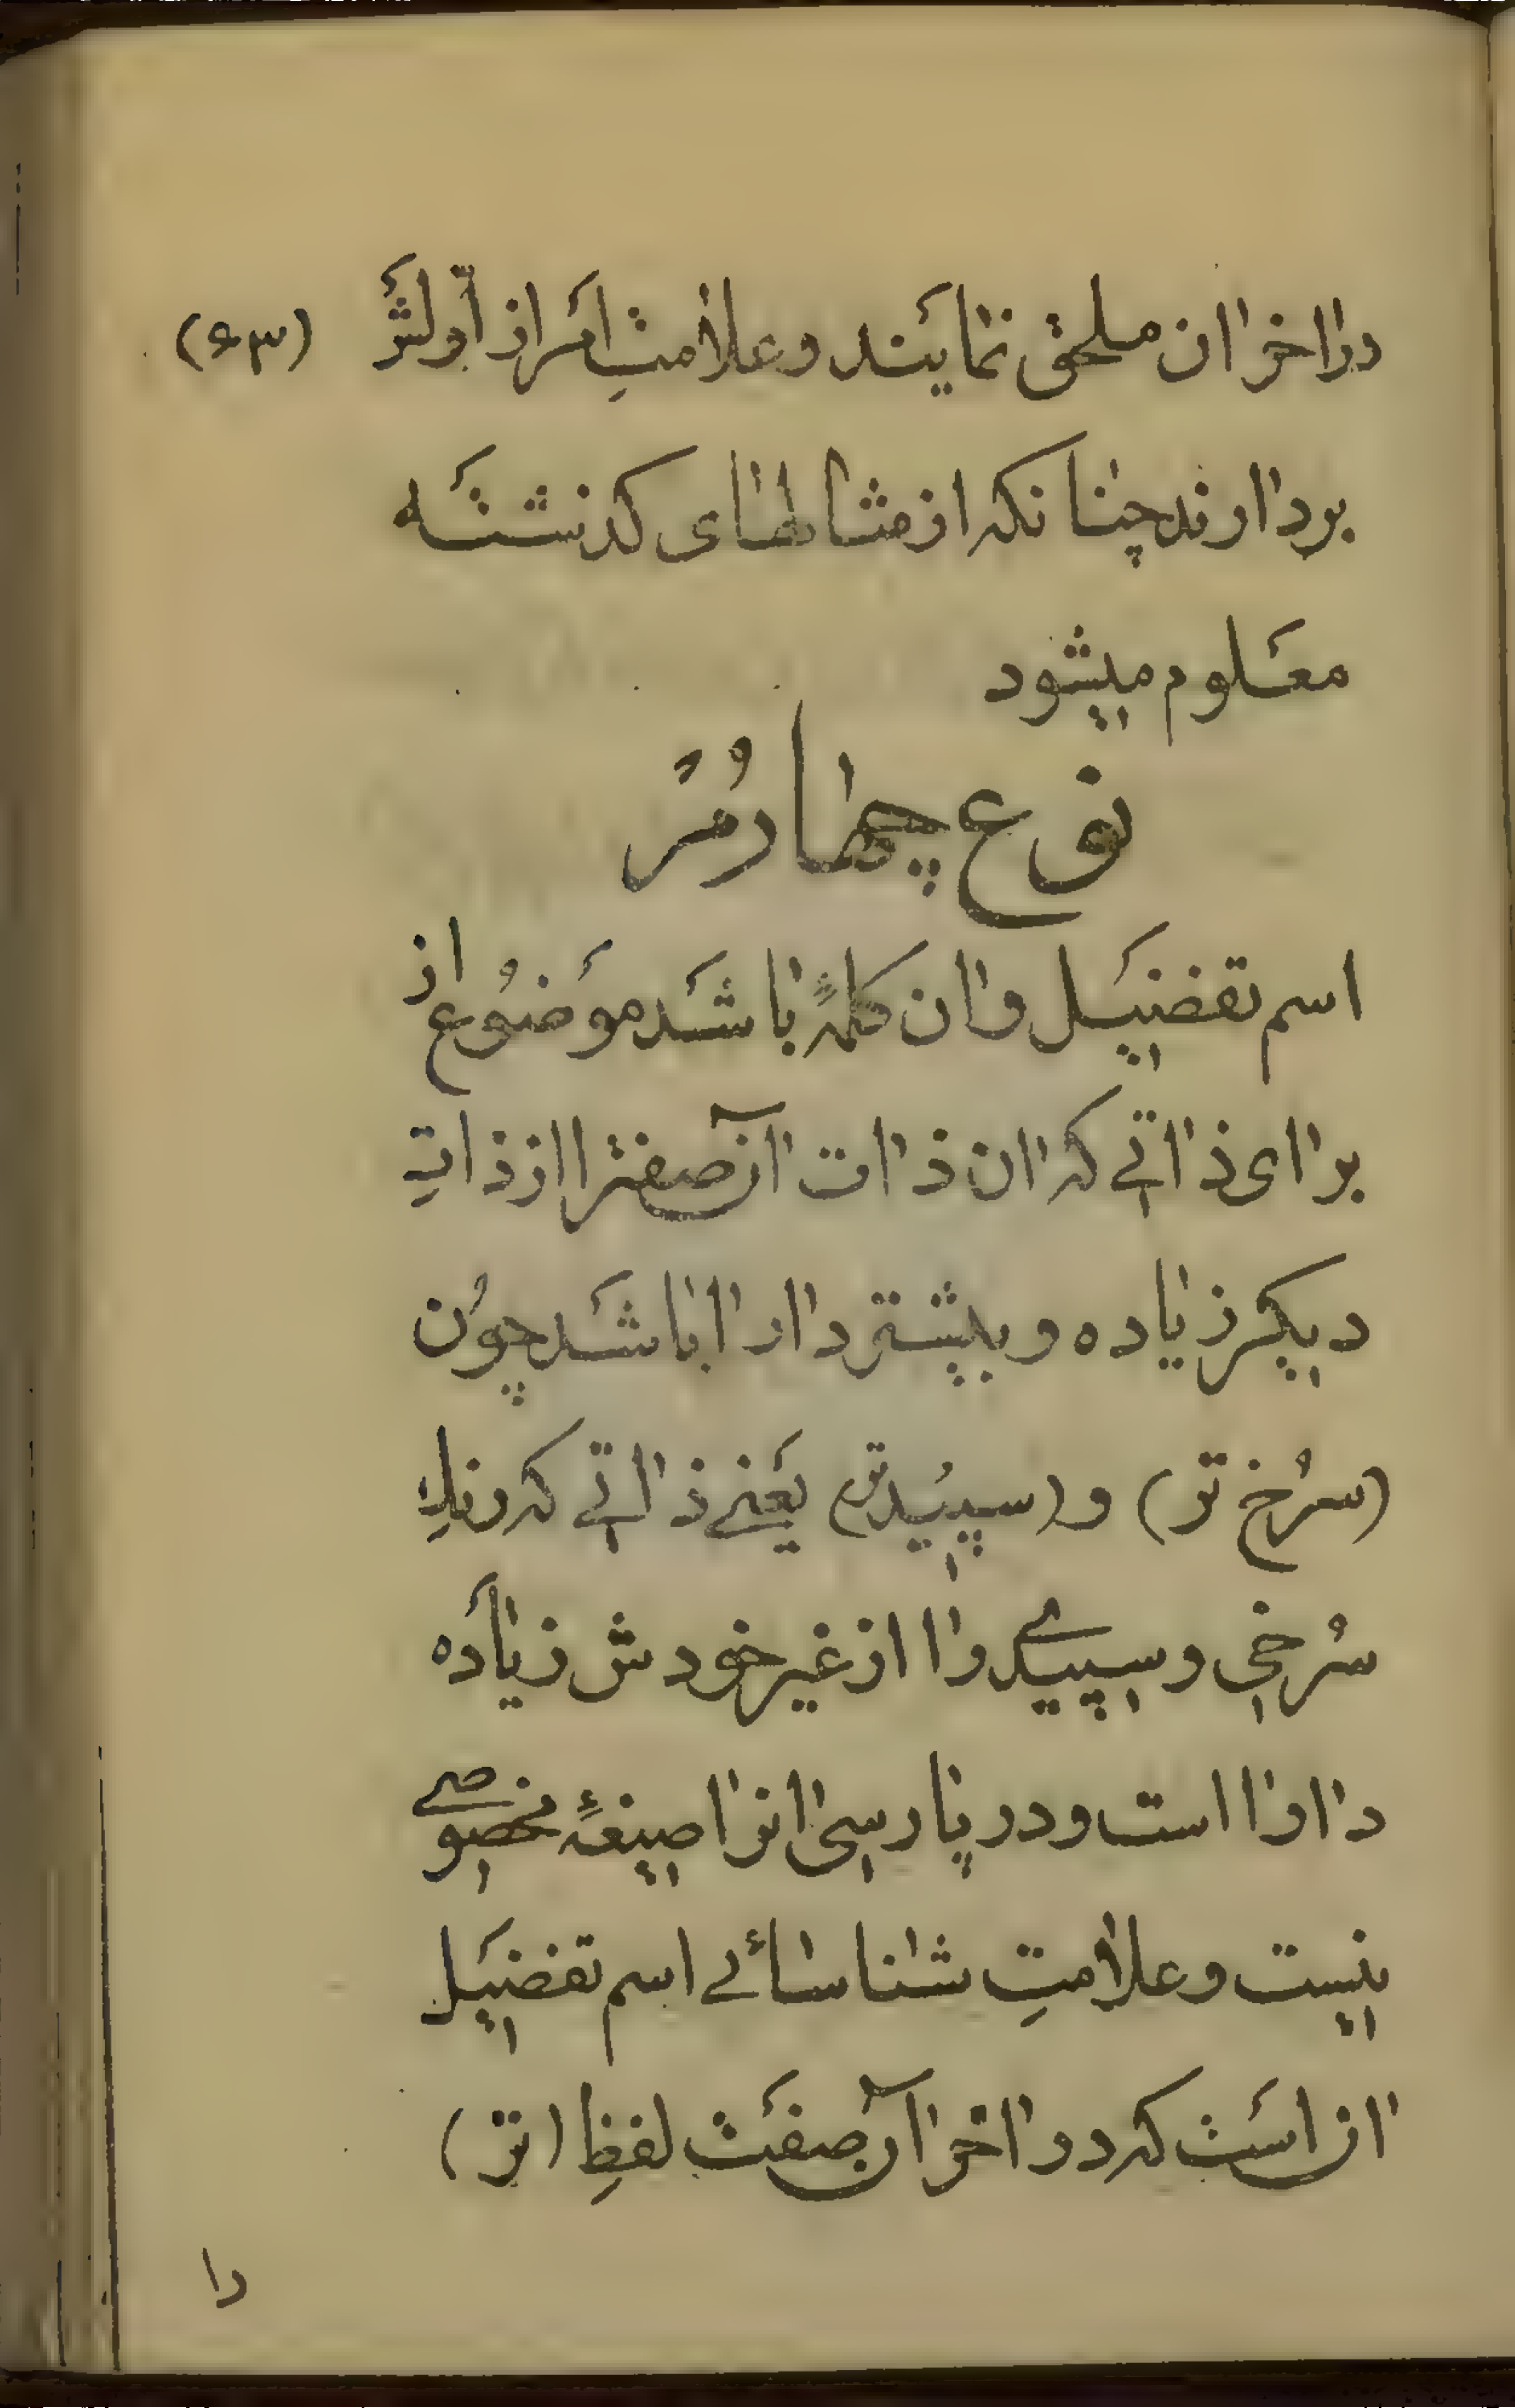 در اخر ان ملحق نمایند و علامتِ امر از اَولش (۹۳)
بردارند چنانکه از مثالهای کذشته
معلوم میشود
نوع چهارُم
اسم تفضیل و ان کلمهٔ باشد موضوع از
برای ذاتے که ان ذات آنصفترا از ذاتِ
دیکر زیاده و بیشتر دارا باشد چون
(سُرخ تر) و (سپیدتر) یعنے ذاتے که رنکِ
سُرخی و سپیدے را از غیر خودش زیاده
دارا است و در پارسی انرا صیغهٔ مخصوصے
نیست و علامتِ شناسائے اسم تفضیل
ان است که در اخر آنصفت لفظِ (تر)
را